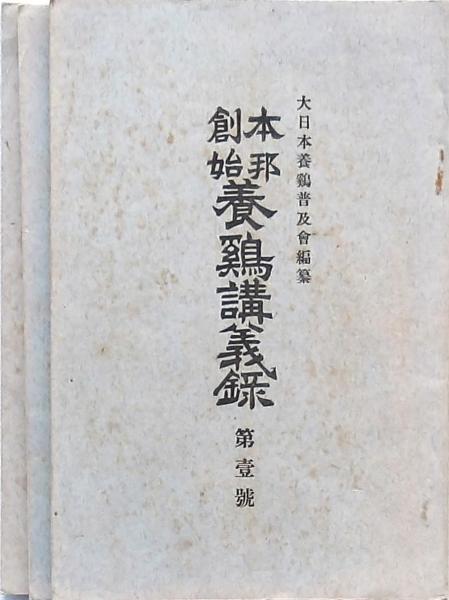 大日本養鷄普及會編纂
本邦
創始
養鷄講義錄
第壹號